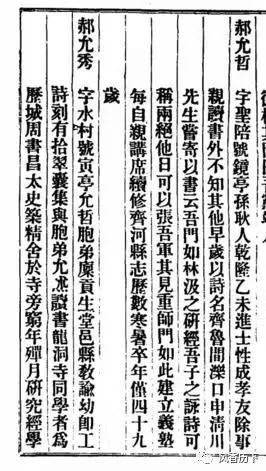 郝允哲
字聖陪號鏡亭孫耿人乾隆乙未進士性成孝友除事
親讀書外不知其他早歲以詩名齊魯間濼口申淸川
先生嘗寄以書云吾門如林汲之硏經吾子之詠詩可
稱兩絕他日可以張吾軍其見重師門如此建立義塾
每自親講席續修齊河縣志歷數寒暑卒年僅四十九
歲
郝允秀
字水村號寅亭允哲胞弟廩貢生堂邑縣敎諭幼卽工
詩刻有拾翠囊集與胞弟允㷂讀書龍洞寺同學者爲
歷城周書昌太史築精舍於寺旁窮年殫月硏究經學
风香历下